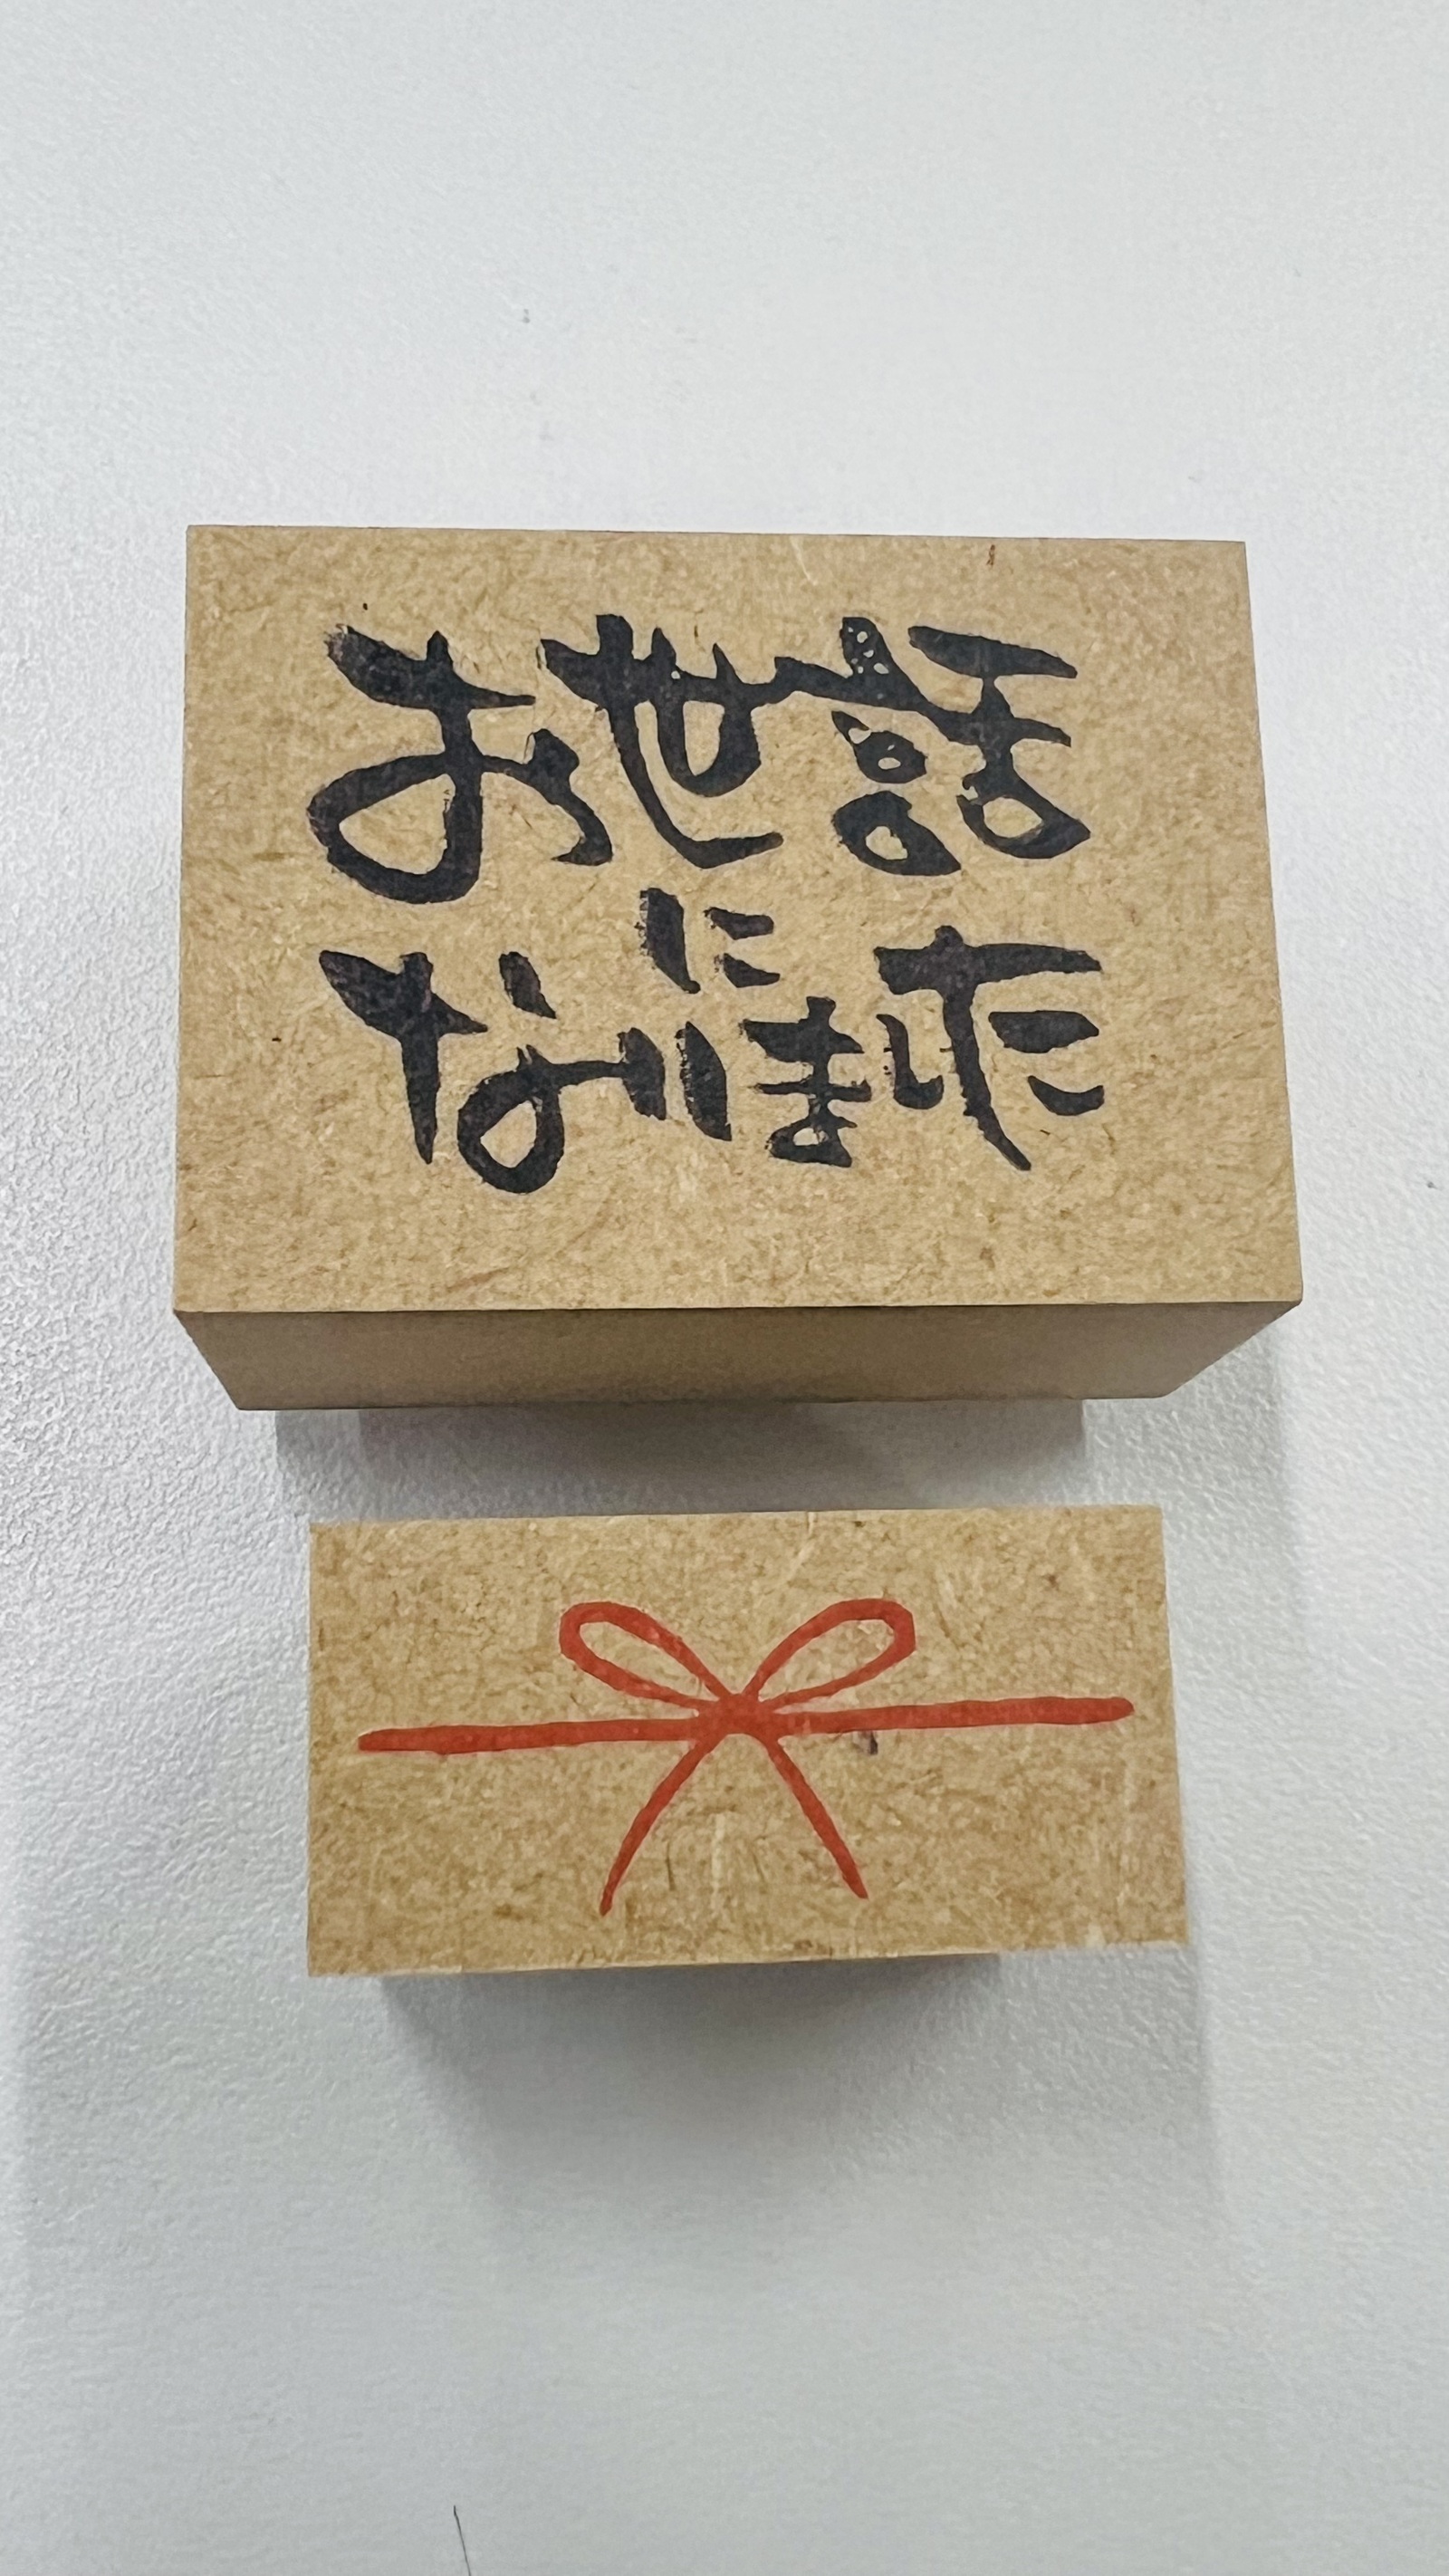 お世話
に
なりました